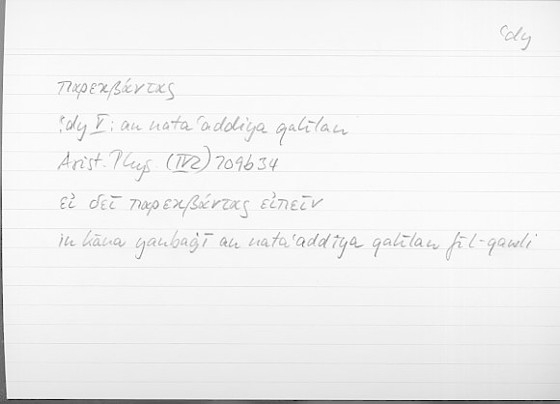 ʿdy
παρεκβάντας
ʿdy V: an nataʿaddiya qalīlan
Arist. Phys. (IV2) 209b34
εἰ δεῖ παρεκβάντας εἰπεῖν
in kāna yanbaġī an nataʿaddiya qalīlan fī l-qawli